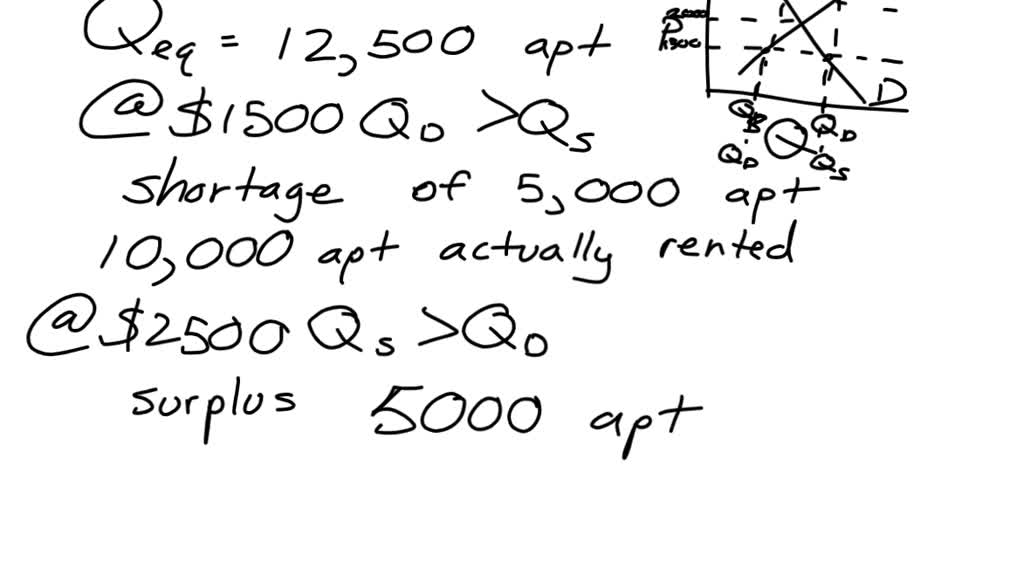 Qeq = 12,500 apt
@ $1500 QD > QS
shortage of 5,000 apt
10,000 apt actually rented
@ $2500 QS > QD
surplus 5000 apt
2000
P1500
D
QD
QD
QS